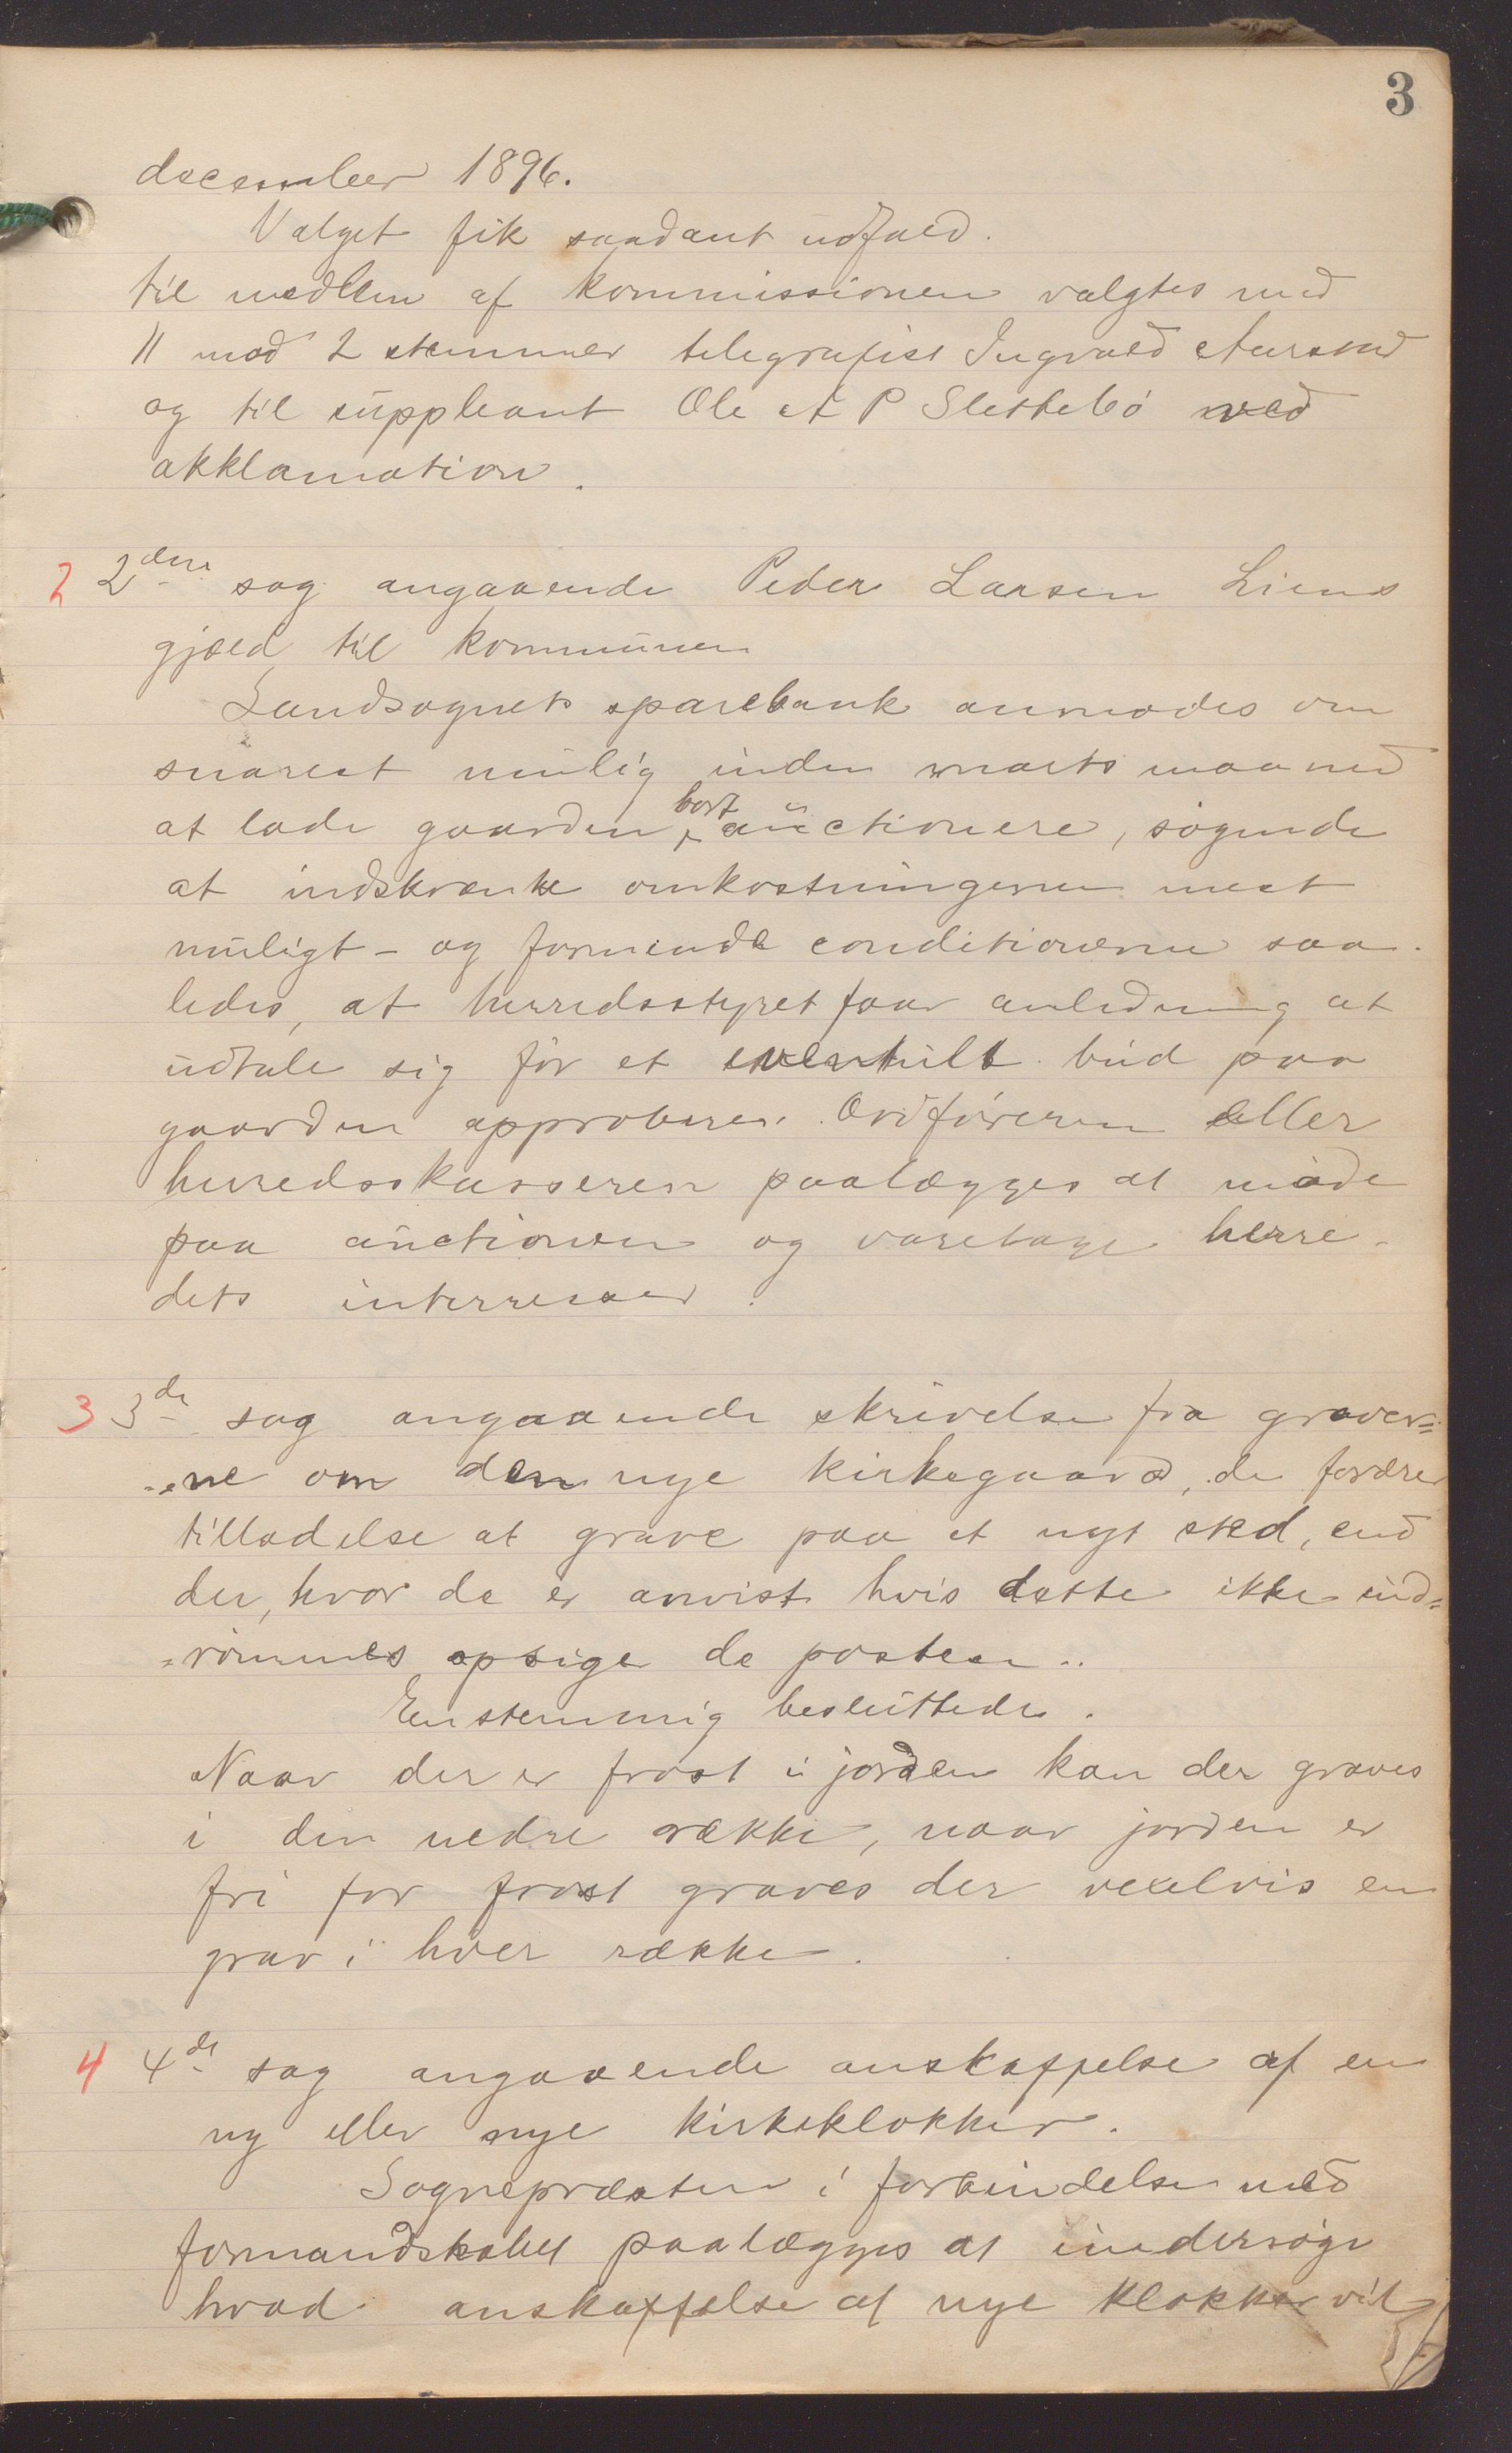 3
december 1896.
Valget fik saadant udfald.
til medlem af kommissionen valgtes med
11 mod 2 stemmer telegrafist Ingvald Aarstad
og til suppleant Ole A P Slettebö ved
akklamation.
2 2den sag angaaende Peder Larsen Liens
gjæld til kommunen
Landsognets sparebank anmodes om
snarest mulig inden marts maaned
at lade gaarden bortauctionere, søgende
at indskrænke omkostningerne mest
muligt – og forminde conditionerne saa-
ledes, at herredsstyret faar anledning at
udtale sig før et eventuelt bud paa
gaarden approberes. Ordføreren eller
herredsskasseren paalægges at møde
paa auctionen og varetage herre-
dets interresser.
3 3de sag angaaende skrivelse fra graver=
=ne om den nye kirkegaard, de fordrer
tilladelse at grave paa et nyt sted, end
der, hvor de er anvist hvis dette ikke ind=
=rømmes opsiger de posten..
Enstemmig besluttedes.
Naar der er frost i jorden kan der graves
i den nedre række, naar jorden er
fri for frost graves der vexelvis en
grav i hver række.
4 4de sag angaaende anskaffelse af en
ny eller nye kirkeklokker.
Sognepræsten i forbindelse med
formandskabet paalægges at undersøge
hvad anskaffelse af nye klokker vil